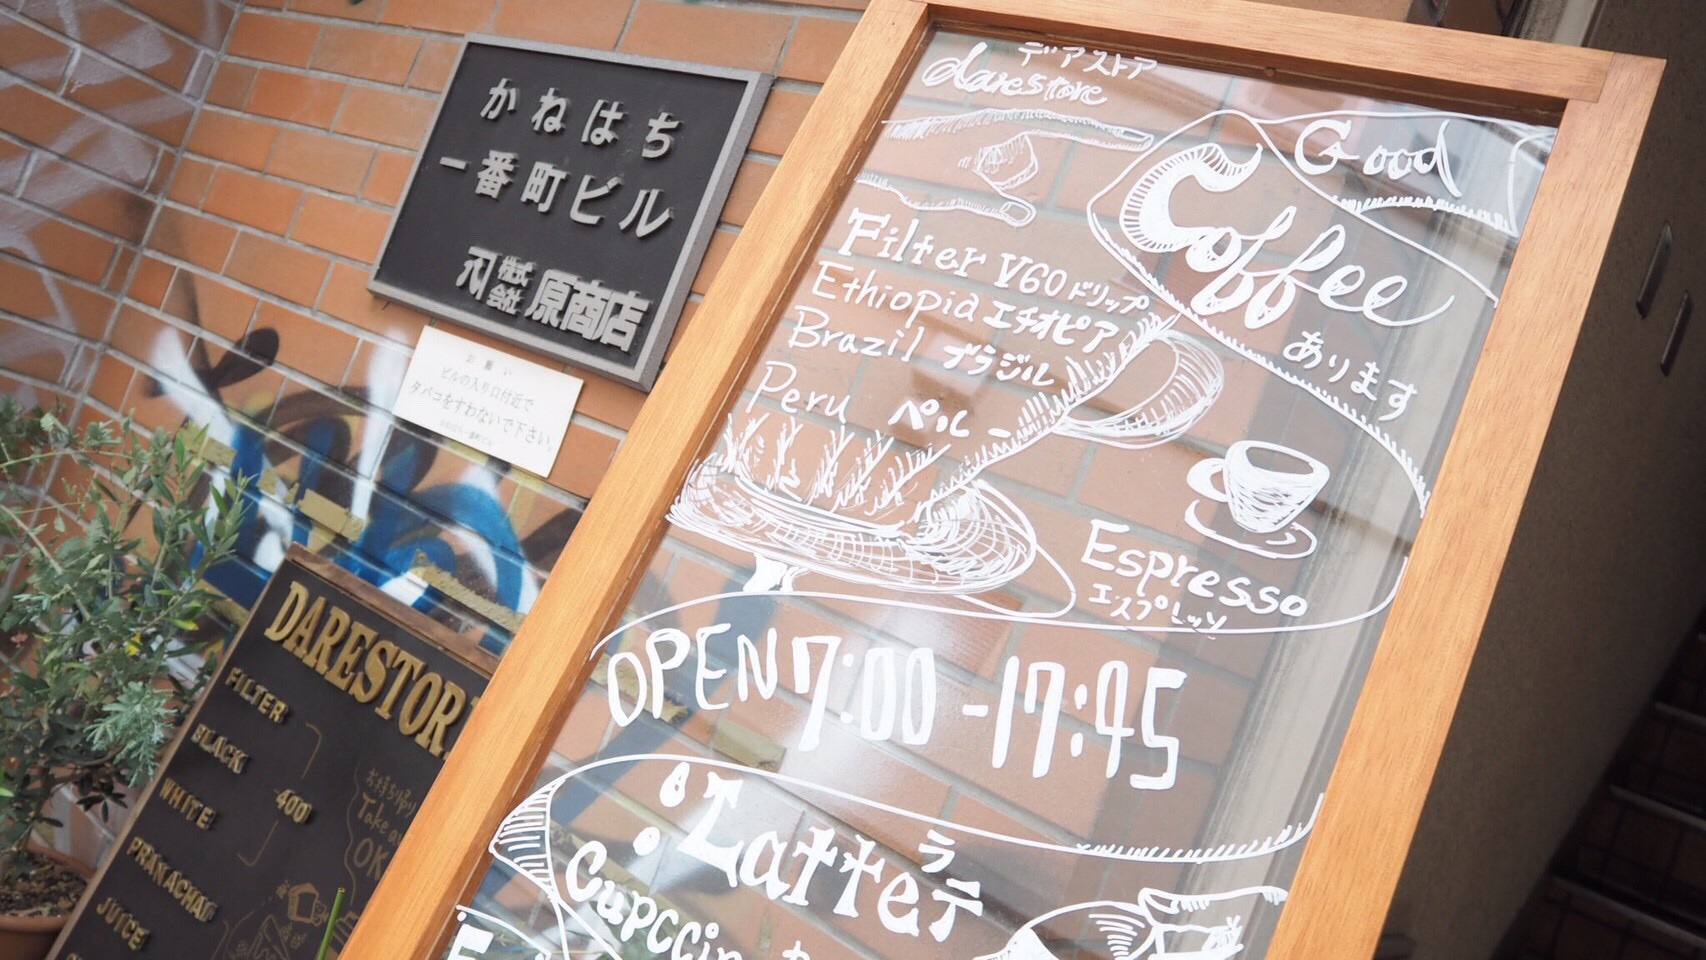 かねはち
一番町ビル
株式会社 原商店
お願い
ビルの入り口付近で
タバコをすわないで下さい。
デアストア
darestore
Good
Coffee
あります
Filter V60 ドリップ
Ethiopia エチオピア
Brazil ブラジル
Peru ペルー
Espresso
エスプレッソ
OPEN 7:00 - 17:45
Latte ラテ
Cupccin
DARESTOR
FILTER
BLACK
WHITE
400
PRANACHAI
JUICE
お持ち帰り
Take
OK